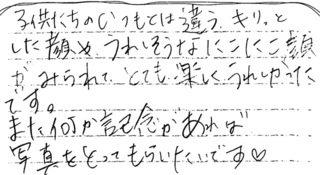 子供たちのいつもとは違う、キリッと
した顔や、うれしそうなにこにこ顔
がみられて、とても楽しくうれしかった
です。
また何か記念があれば
写真をとってもらいたいです♡